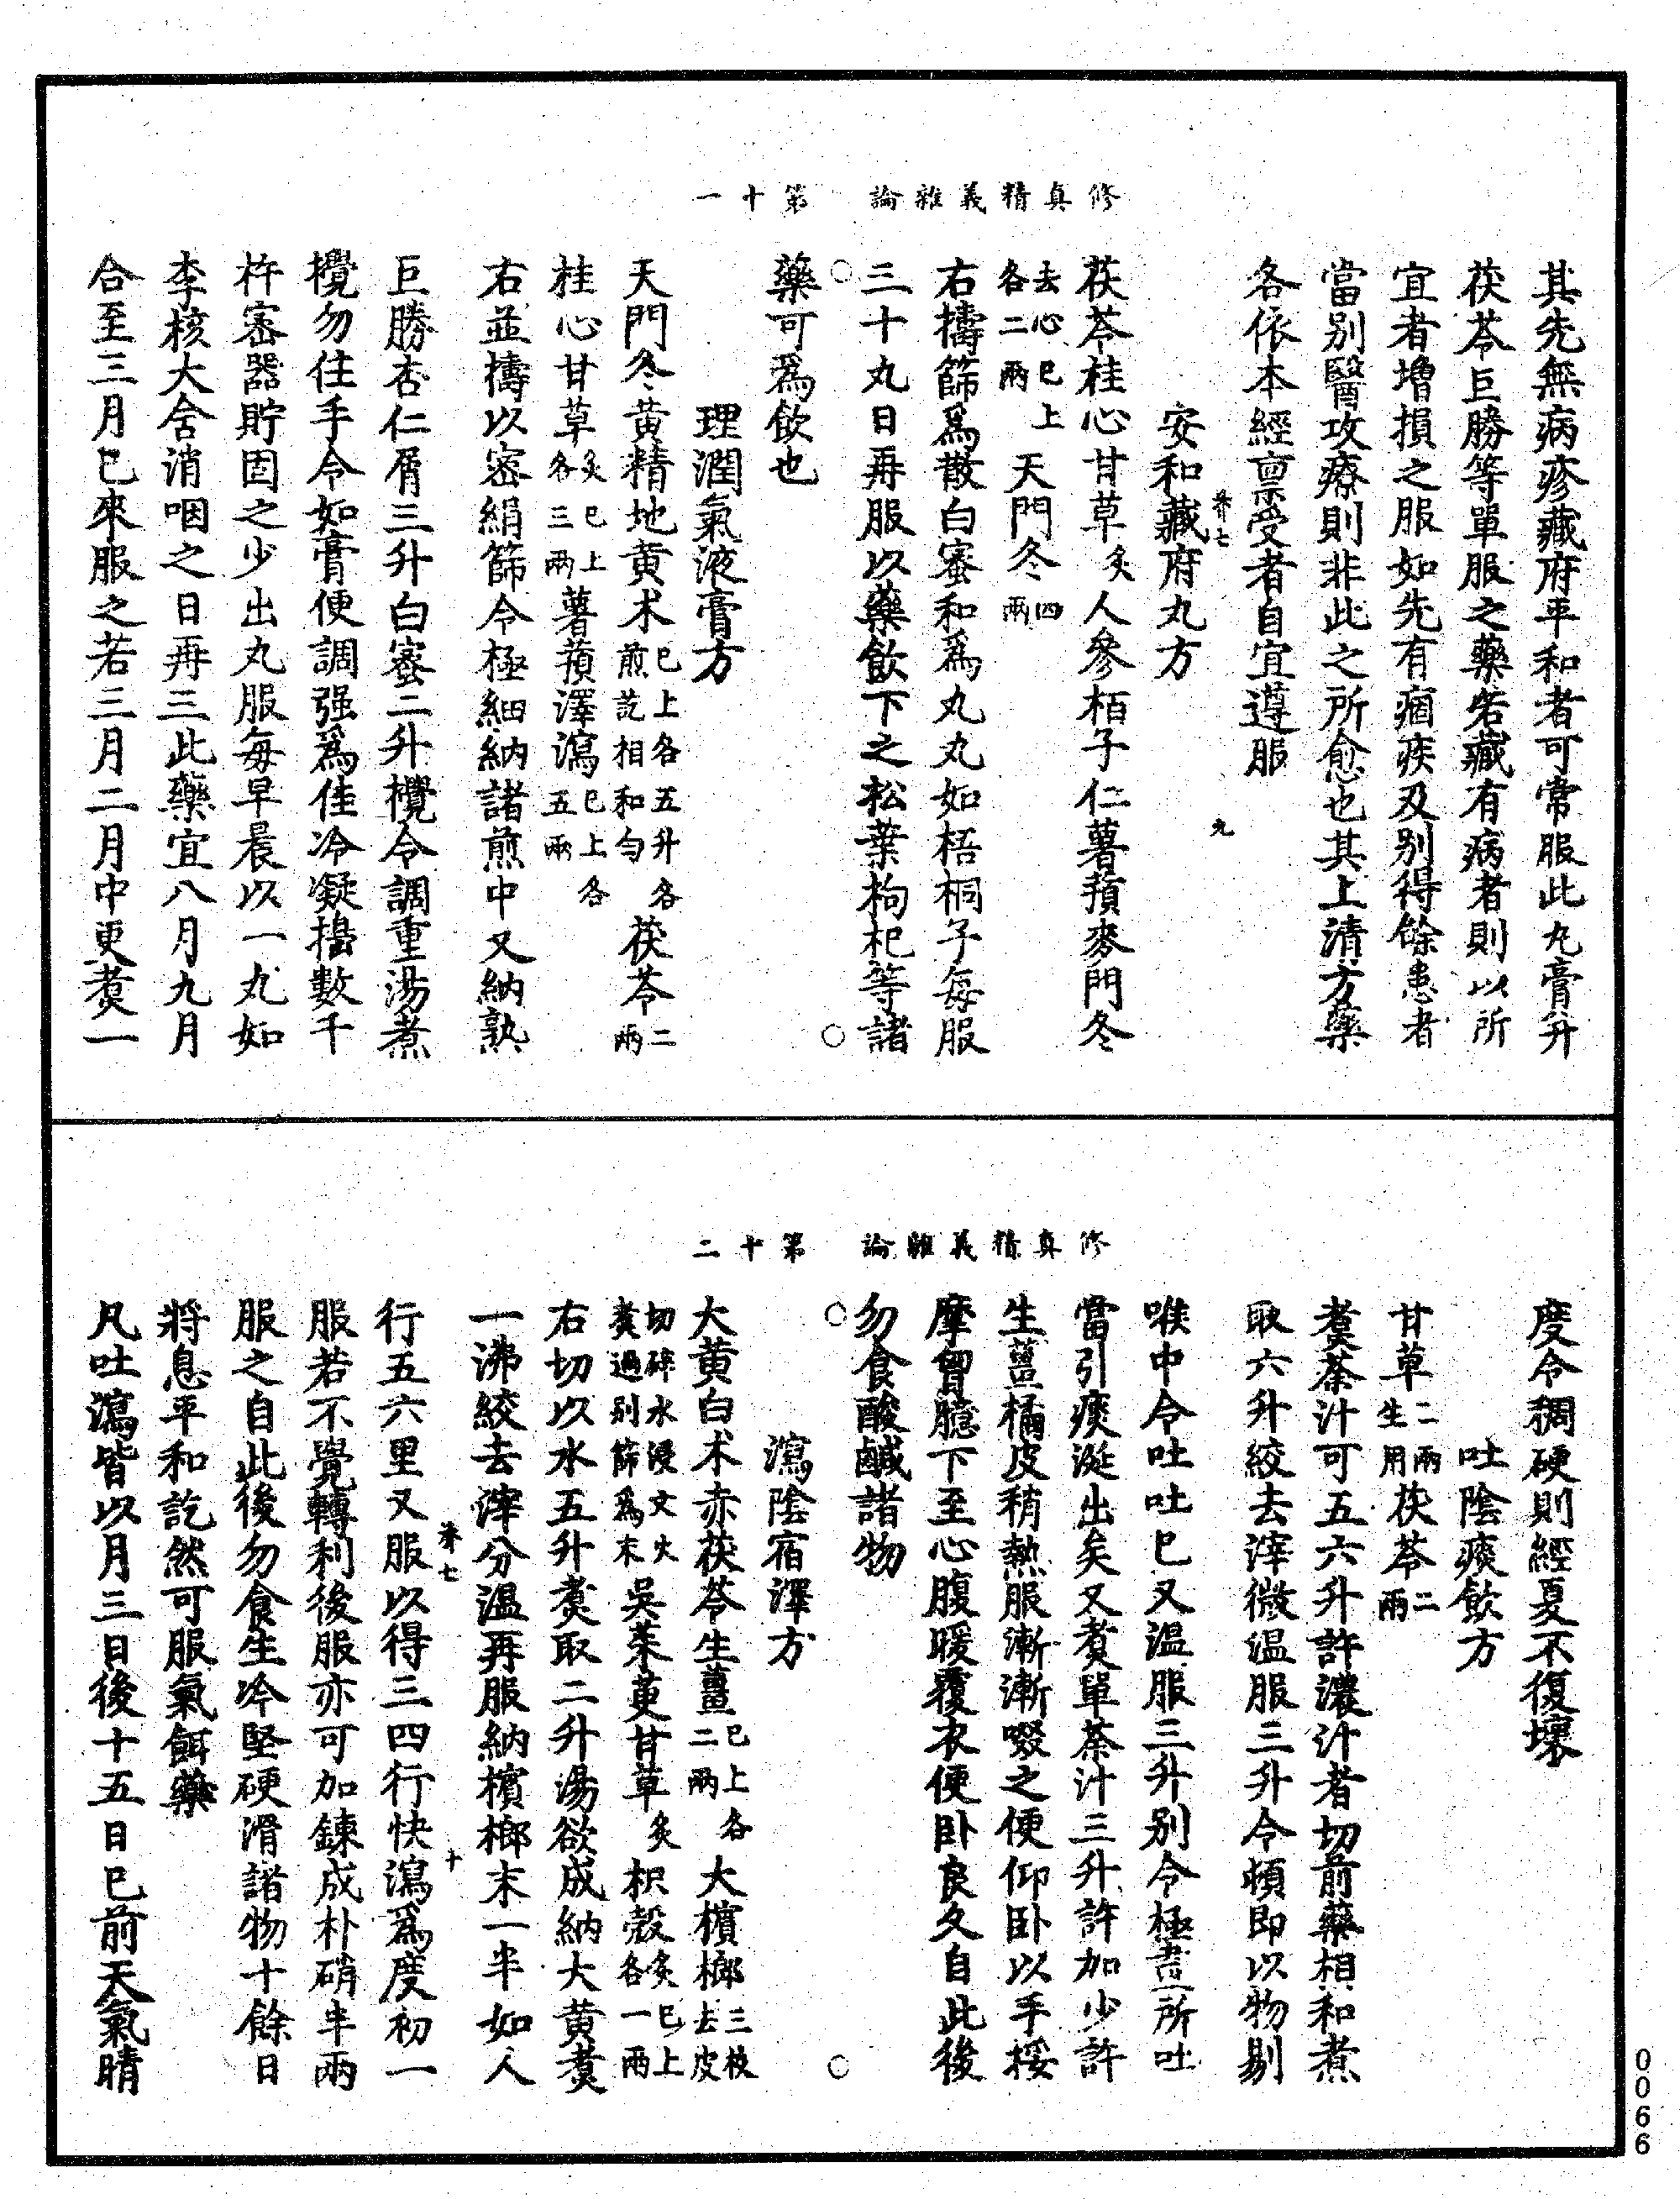 修真精義雜論　第十一
其先無病疹藏府平和者可常服此丸膏并
茯苓巨勝等單服之藥若藏有病者則以所
宜者增損之服如先有痼疾及別得餘患者
當別醫攻療則非此之所愈也其上清方藥
各依本經禀受者自宜遵服
七　九
安和藏府丸方
茯苓桂心甘草炙人參栢子仁薯蕷麥門冬
去心巳上各二兩天門冬四兩
右擣篩爲散白蜜和爲丸丸如梧桐子每服
三十丸日再服以藥飲下之松葉枸杞等諸
藥可爲飲也
理潤氣液膏方
天門冬黃精地黃术巳上各五升各煎訖相和勻茯苓二兩
桂心甘草炙巳上各三兩薯蕷澤瀉巳上各五兩
右並擣以密絹篩令極細納諸煎中又納熟
巨勝杏仁屑三升白蜜二升攪令調重湯煮
攪勿住手令如膏便調强爲佳冷凝擣數千
杵密器貯固之少出丸服每早晨以一丸如
李核大含消咽之日再三此藥宜八月九月
合至三月巳來服之若三月二月中更煑一
修真精義雜論　第十二
度令稠硬則經夏不復壞
吐陰痰飲方
甘草二兩生用茯苓二兩
煑茶汁可五六升許濃汁者切前藥相和煮
取六升絞去滓微温服三升令頓即以物剔
喉中令吐吐巳又温服三升别令極盡所吐
當引痰涎出矣又煑單茶汁三升許加少許
生薑橘皮稍熱服漸漸啜之便仰卧以手挼
摩胷臆下至心腹暖覆衣便卧良久自此後
勿食酸鹹諸物
瀉陰宿澤方
大黃白术赤茯苓生薑巳上各二兩大檳榔三枚去皮
切碎水浸文火煑過别篩爲末吳茱萸甘草炙枳殼炙巳上各一兩
右切以水五升煑取二升湯欲成納大黃煑
一沸絞去滓分温再服納檳榔末一半如人
七　十
行五六里又服以得三四行快瀉爲度初一
服若不覺轉利後服亦可加鍊成朴硝半兩
服之自此後勿食生冷堅硬滑諸物十餘日
將息平和訖然可服氣餌藥
凡吐瀉皆以月三日後十五日巳前天氣晴
0066